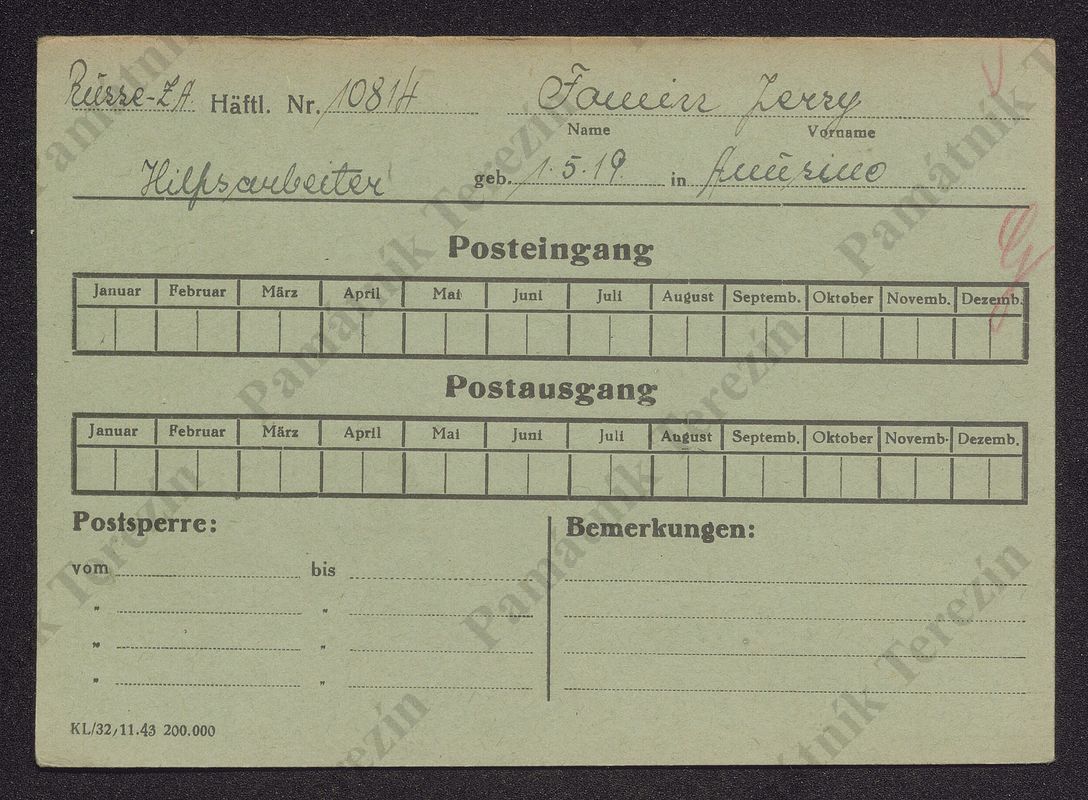 Russe-ZA. Häftl. Nr. 10814 Fomin Jerzy
Name Vorname
Hilfsarbeiter geb. 1.5.19. in
Posteingang
Januar Februar März April Mai Juni Juli August Septemb. Oktober Novemb. Dezemb.
Postausgang
Januar Februar März April Mai Juni Juli August Septemb. Oktober Novemb. Dezemb.
Postsperre: Bemerkungen:
vom bis
" "
" "
" "
KL/32/11.43 200.000
Památník Terezín